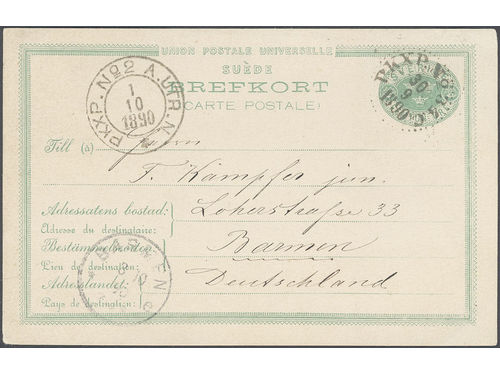 UNION POSTALE UNIVERSELLE
SUÈDE
BREFKORT
(CARTE POSTALE)
PKXP. No 2 A. UTR. N.
1
10
1890
PKXP. No
30
9
1890
Till (à) Herrn
F. Kämpfer jun.
Adressatens bostad: Loherstraße 33
Adresse du destinataire:
Bestämmelseorten: Barmen
Lieu de destination:
Adresslandet: Deutschland
Pays de destination:
BARMEN